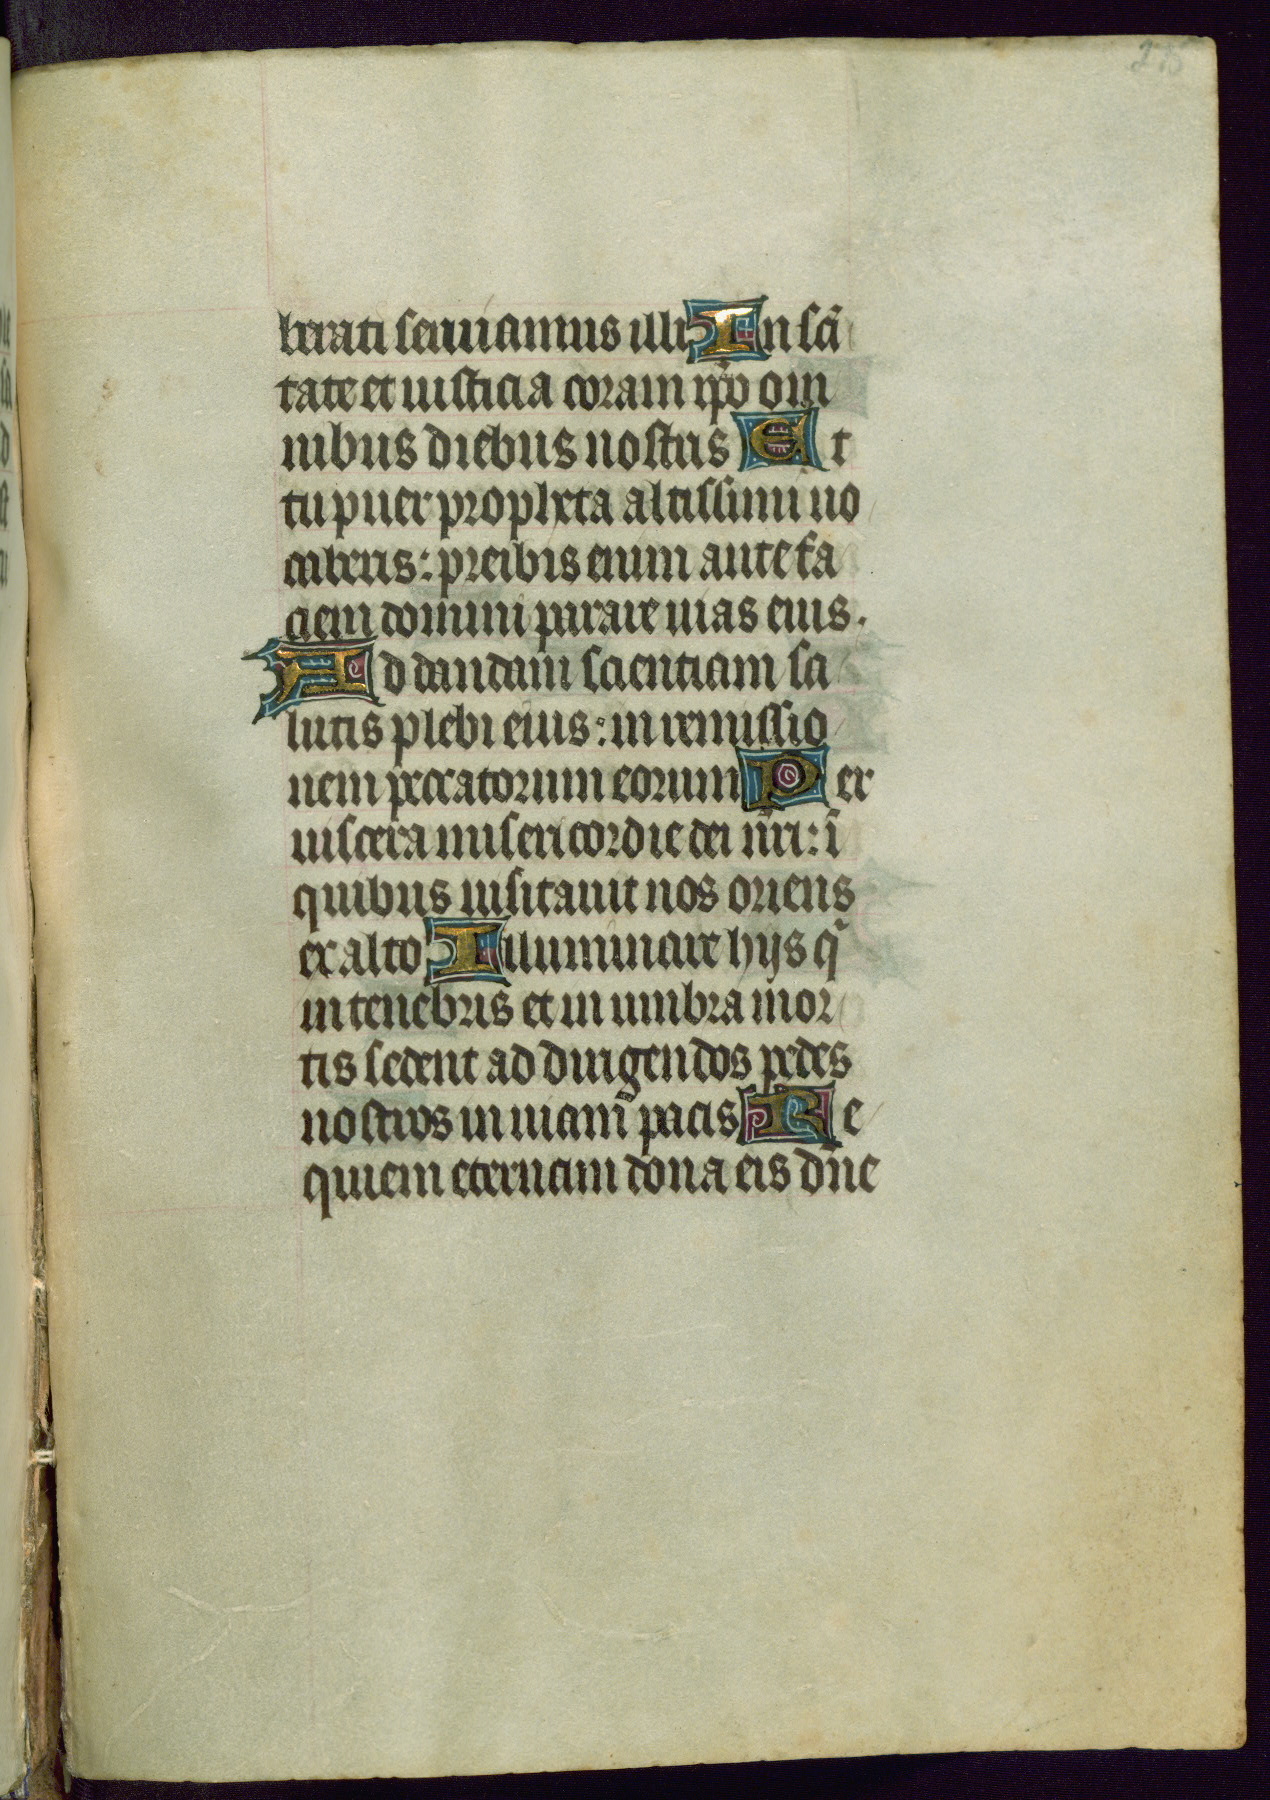 berati seruiamus illi In scī
tate et iusticia coram ip̄o om
nibus diebus nostris Et
tu puer propheta altissimi uo
caberis: preibis enim ante fa
ciem domini parare uias eius.
Ad dandam scientiam sa
lutis plebi eius: in remissio
nem peccatorum eorum Per
uiscera misericordie dei n̄ri: ī
quibus uisitauit nos oriens
ex alto Illuminare hijs q̄
in tenebris et in umbra mor
tis sedent ad dirigendos pedes
nostros in uiam pacis Re
quiem eternam dona eis dn̄e